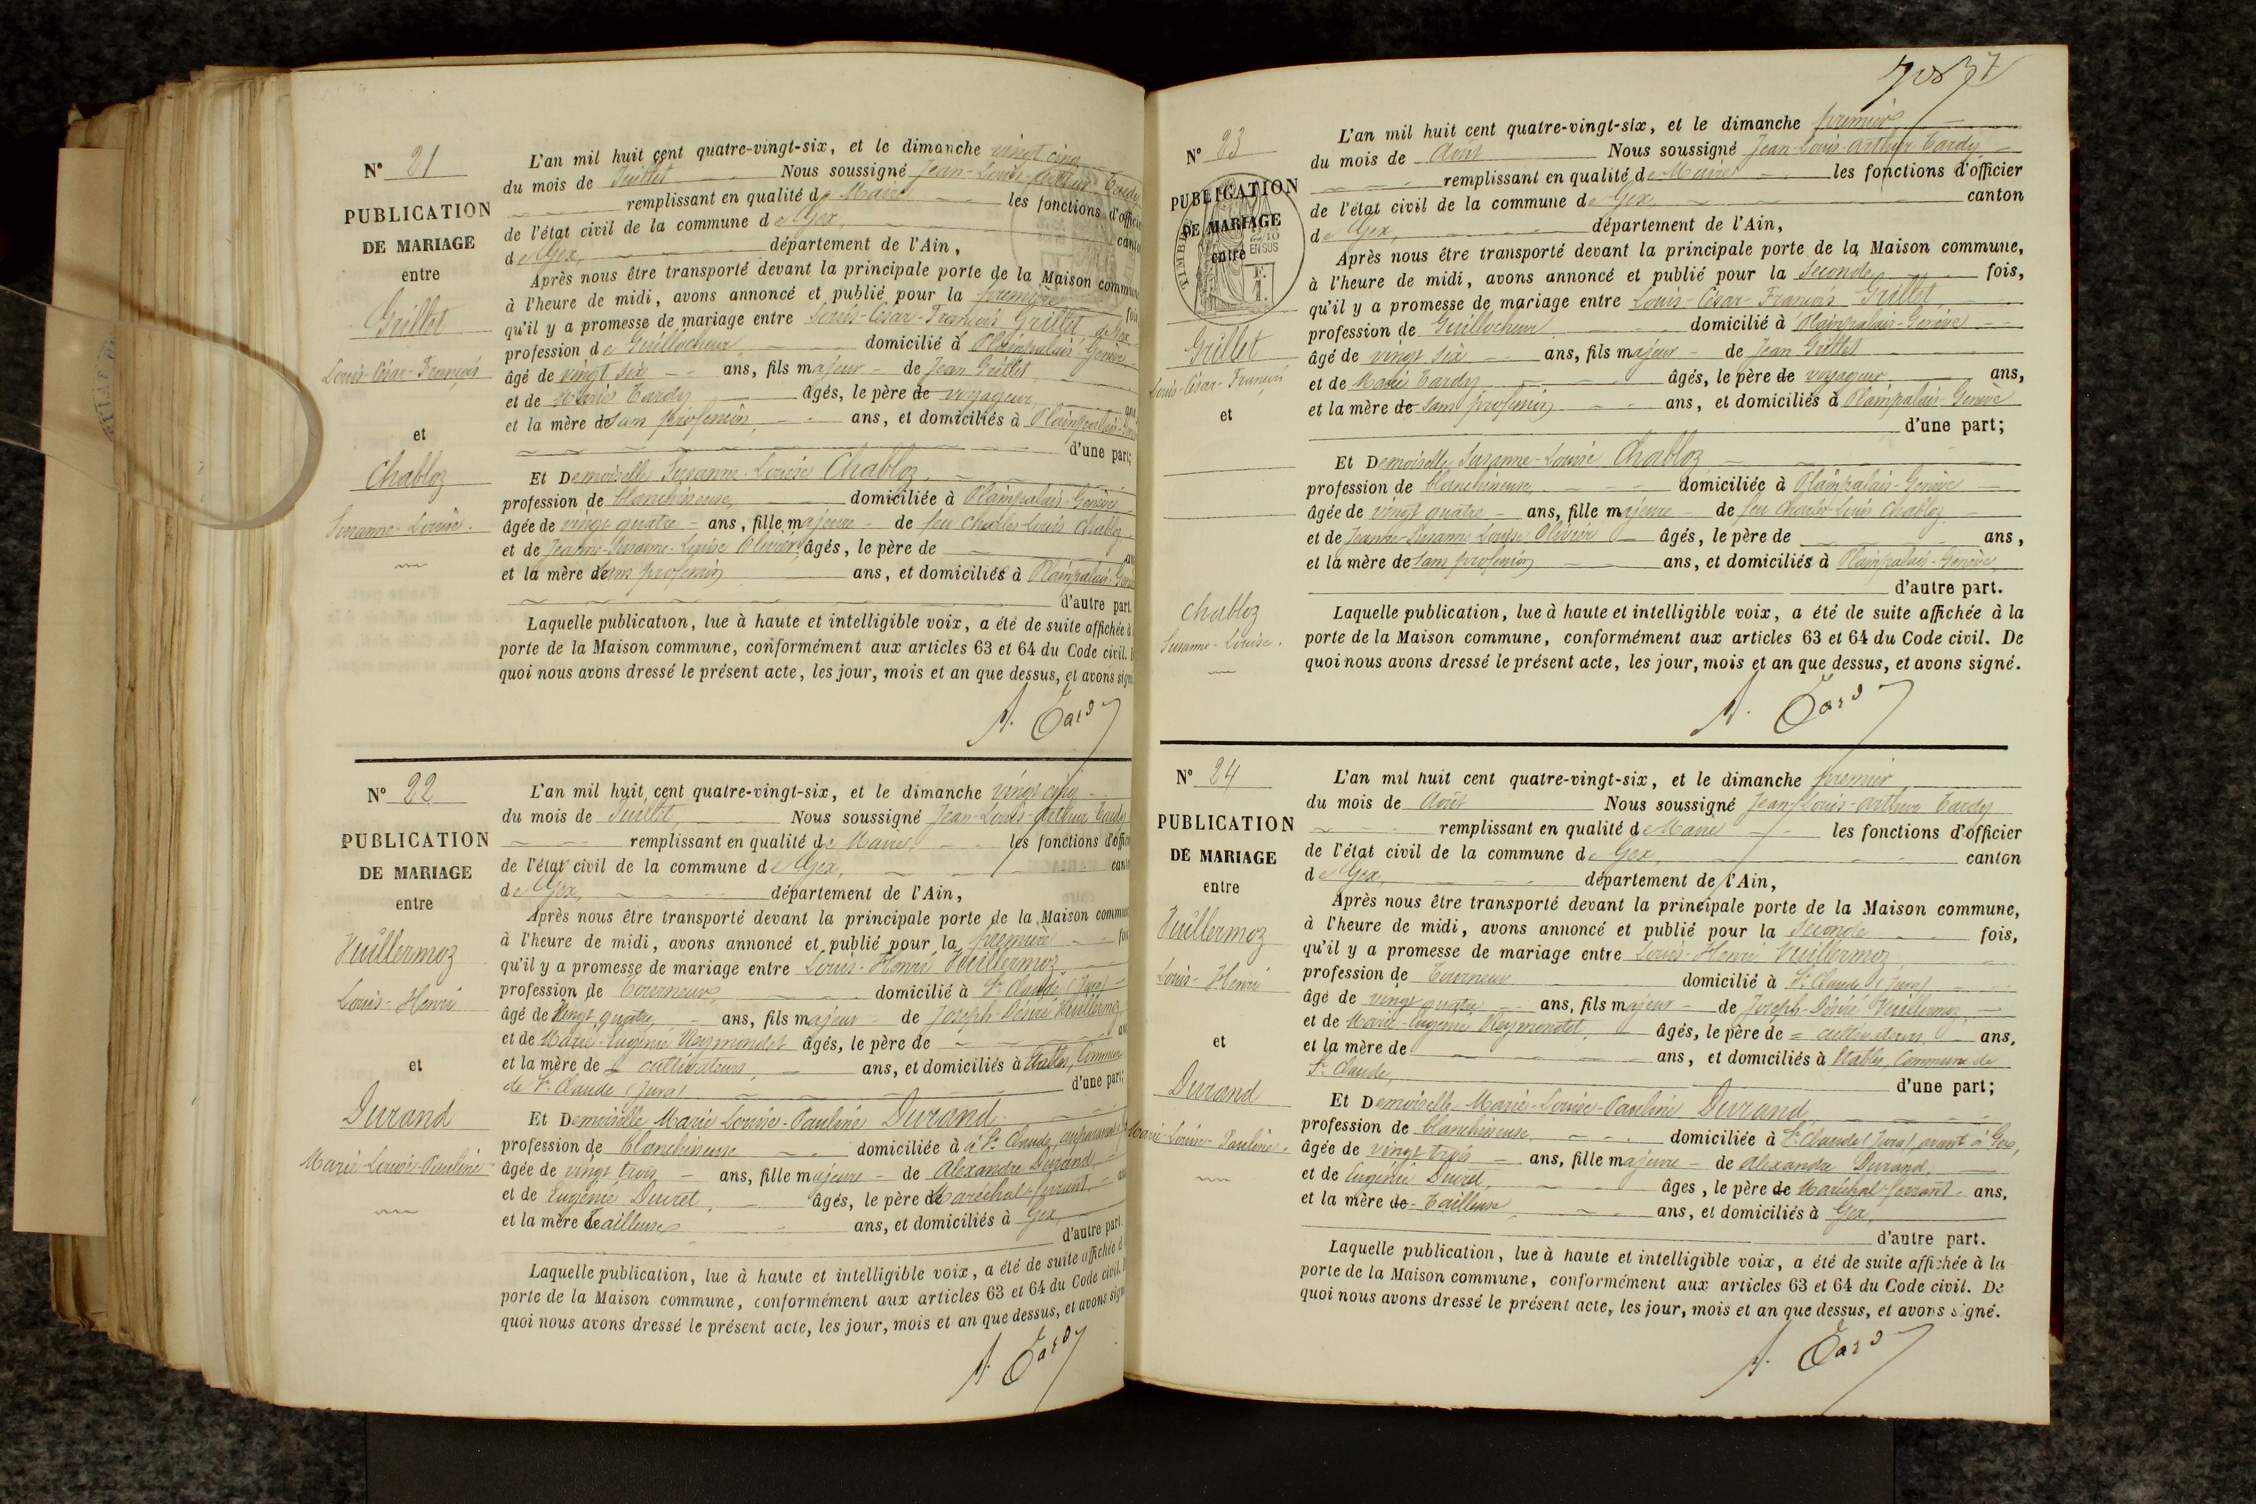 N° 21
PUBLICATION
DE MARIAGE
entre
Grillet
Louis-César-François
et
Chabloz
Suzanne-Louise.
L'an mil huit cent quatre-vingt-six, et le dimanche vingt cinq
du mois de Juillet Nous soussigné Jean-Louis-Arthur Tardy
remplissant en qualité de Maire les fonctions d'offici
de l'état civil de la commune de Gex, canto
de Gex, département de l'Ain,
Après nous être transporté devant la principale porte de la Maison commun
à l'heure de midi, avons annoncé et publié pour la première foi
qu'il y a promesse de mariage entre Louis-César-François Grillet, de Gex
profession de Guillocheur domicilié à Plainpalais-Genève
âgé de vingt six ans, fils majeur de Jean Grillet
et de Marie Tardy âgés, le père de voyageur an
et la mère de sans profession ans, et domiciliés à Plainpalais-Genève
d'une part;
Et Demoiselle Suzanne-Louise Chabloz,
profession de blanchisseuse, domiciliée à Plainpalais-Genève
âgée de vingt quatre ans, fille majeure de feu Charles-Louis Chabloz
et de Jeanne-Suzanne-Louise Olivier âgés, le père de an
et la mère de sans profession ans, et domiciliés à Plainpalais-Genève
d'autre part.
Laquelle publication, lue à haute et intelligible voix, a été de suite affichée à l
porte de la Maison commune, conformément aux articles 63 et 64 du Code civil. D
quoi nous avons dressé le présent acte, les jour, mois et an que dessus, et avons signé
A. Tardy
N° 22
PUBLICATION
DE MARIAGE
entre
Vuillermoz
Louis-Henri
et
Durand
Marie-Louise-Pauline
L'an mil huit cent quatre-vingt-six, et le dimanche vingt cinq
du mois de Juillet, Nous soussigné Jean-Louis-Arthur Tardy
remplissant en qualité de Maire, les fonctions d'offici
de l'état civil de la commune de Gex, canto
de Gex, département de l'Ain,
Après nous être transporté devant la principale porte de la Maison commun
à l'heure de midi, avons annoncé et publié pour la première foi
qu'il y a promesse de mariage entre Louis-Henri Vuillermoz
profession de Tourneur, domicilié à St. Claude (Jura)
âgé de vingt quatre, ans, fils majeur de Joseph Désiré Vuillermoz
et de Marie-Eugénie Reymondet âgés, le père de an
et la mère de = cultivateurs, ans, et domiciliés à Etables, Commune
de St. Claude (Jura) d'une part;
Et Demoiselle Marie Louise-Pauline Durand,
profession de blanchisseuse domiciliée à à St. Claude, auparavant à
âgée de vingt trois ans, fille majeure de Alexandre Durand,
et de Eugénie Duret, âgés, le père de Maréchal-ferrant, an
et la mère de Tailleuse, ans, et domiciliés à Gex,
d'autre part.
Laquelle publication, lue à haute et intelligible voix, a été de suite affichée à
porte de la Maison commune, conformément aux articles 63 et 64 du Code civil. D
quoi nous avons dressé le présent acte, les jour, mois et an que dessus, et avons sign
A. Tardy
37
N° 23
PUBLICATION
DE MARIAGE
entre
Grillet
Louis-César-François
et
Chabloz
Suzanne-Louise.
L'an mil huit cent quatre-vingt-six, et le dimanche premier
du mois de Août Nous soussigné Jean-Louis-Arthur Tardy
remplissant en qualité de Maire les fonctions d'officier
de l'état civil de la commune de Gex, canton
de Gex, département de l'Ain,
Après nous être transporté devant la principale porte de la Maison commune,
à l'heure de midi, avons annoncé et publié pour la seconde fois,
qu'il y a promesse de mariage entre Louis-César-François Grillet,
profession de Guillocheur domicilié à Plainpalais-Genève
âgé de vingt six ans, fils majeur de Jean Grillet
et de Marie Tardy âgés, le père de voyageur ans,
et la mère de sans profession ans, et domiciliés à Plainpalais-Genève
d'une part;
Et Demoiselle Suzanne-Louise Chabloz
profession de blanchisseuse, domiciliée à Plainpalais-Genève
âgée de vingt quatre ans, fille majeure de feu Charles-Louis Chabloz
et de Jeanne Suzanne Louise Olivier âgés, le père de ans,
et la mère de sans profession ans, et domiciliés à Plainpalais-Genève
d'autre part.
Laquelle publication, lue à haute et intelligible voix, a été de suite affichée à la
porte de la Maison commune, conformément aux articles 63 et 64 du Code civil. De
quoi nous avons dressé le présent acte, les jour, mois et an que dessus, et avons signé.
A. Tardy
N° 24
PUBLICATION
DE MARIAGE
entre
Vuillermoz
Louis-Henri
et
Durand
Marie-Louise-Pauline.
L'an mil huit cent quatre-vingt-six, et le dimanche premier
du mois de Août Nous soussigné Jean-Louis-Arthur Tardy
remplissant en qualité de Maire les fonctions d'officier
de l'état civil de la commune de Gex, canton
de Gex, département de l'Ain,
Après nous être transporté devant la principale porte de la Maison commune,
à l'heure de midi, avons annoncé et publié pour la seconde fois,
qu'il y a promesse de mariage entre Louis-Henri Vuillermoz
profession de Tourneur domicilié à St. Claude (Jura)
âgé de vingt quatre ans, fils majeur de Joseph-Désiré Vuillermoz,
et de Marie-Eugénie Reymondet, âgés, le père de = cultivateurs ans,
et la mère de ans, et domiciliés à Etables, Commune de
St. Claude, d'une part;
Et Demoiselle Marie-Louise-Pauline Durand
profession de blanchisseuse domiciliée à St. Claude (Jura) avant à Gex,
âgée de vingt trois ans, fille majeure de Alexandre Durand,
et de Eugénie Duret, âges, le père de Maréchal-ferrant ans,
et la mère de Tailleuse ans, et domiciliés à Gex,
d'autre part.
Laquelle publication, lue à haute et intelligible voix, a été de suite affichée à la
porte de la Maison commune, conformément aux articles 63 et 64 du Code civil. De
quoi nous avons dressé le présent acte, les jour, mois et an que dessus, et avons signé.
A. Tardy